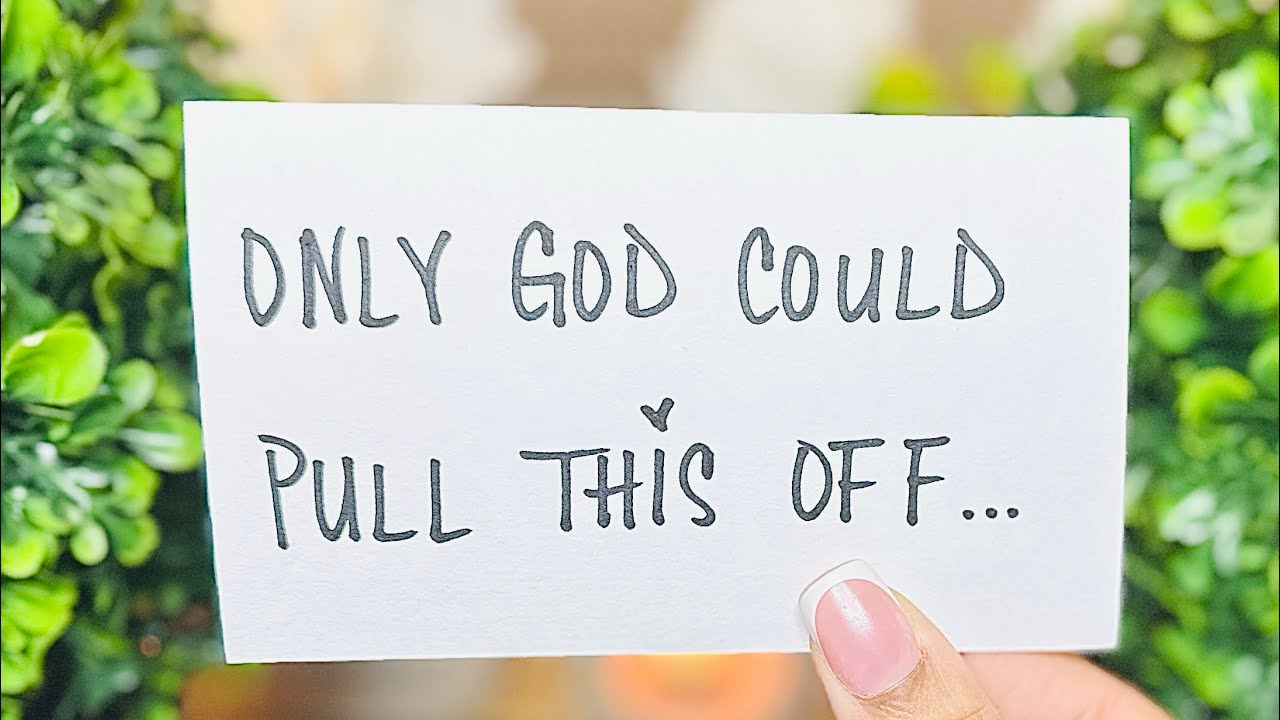 ONLY GOD COULD
PULL THIS OFF...